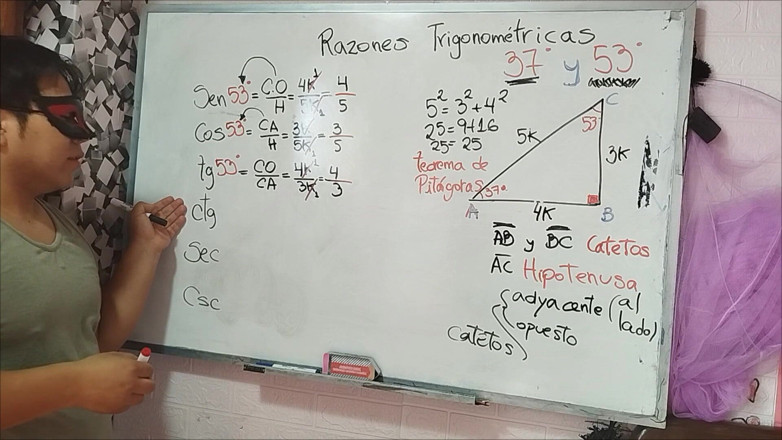 Razones Trigonométricas
37° y 53°
Sen 53° = C.O/H = 4K/5K = 4/5
Cos 53° = CA/H = 3K/5K = 3/5
tg 53° = CO/CA = 4K/3K = 4/3
ctg
Sec
Csc
5² = 3² + 4²
25 = 9+16
25 = 25
teorema de
Pitágoras
C
53°
5K
3K
37°
A
4K
B
AB y BC Catetos
AC Hipotenusa
catetos
adyacente (al lado)
opuesto